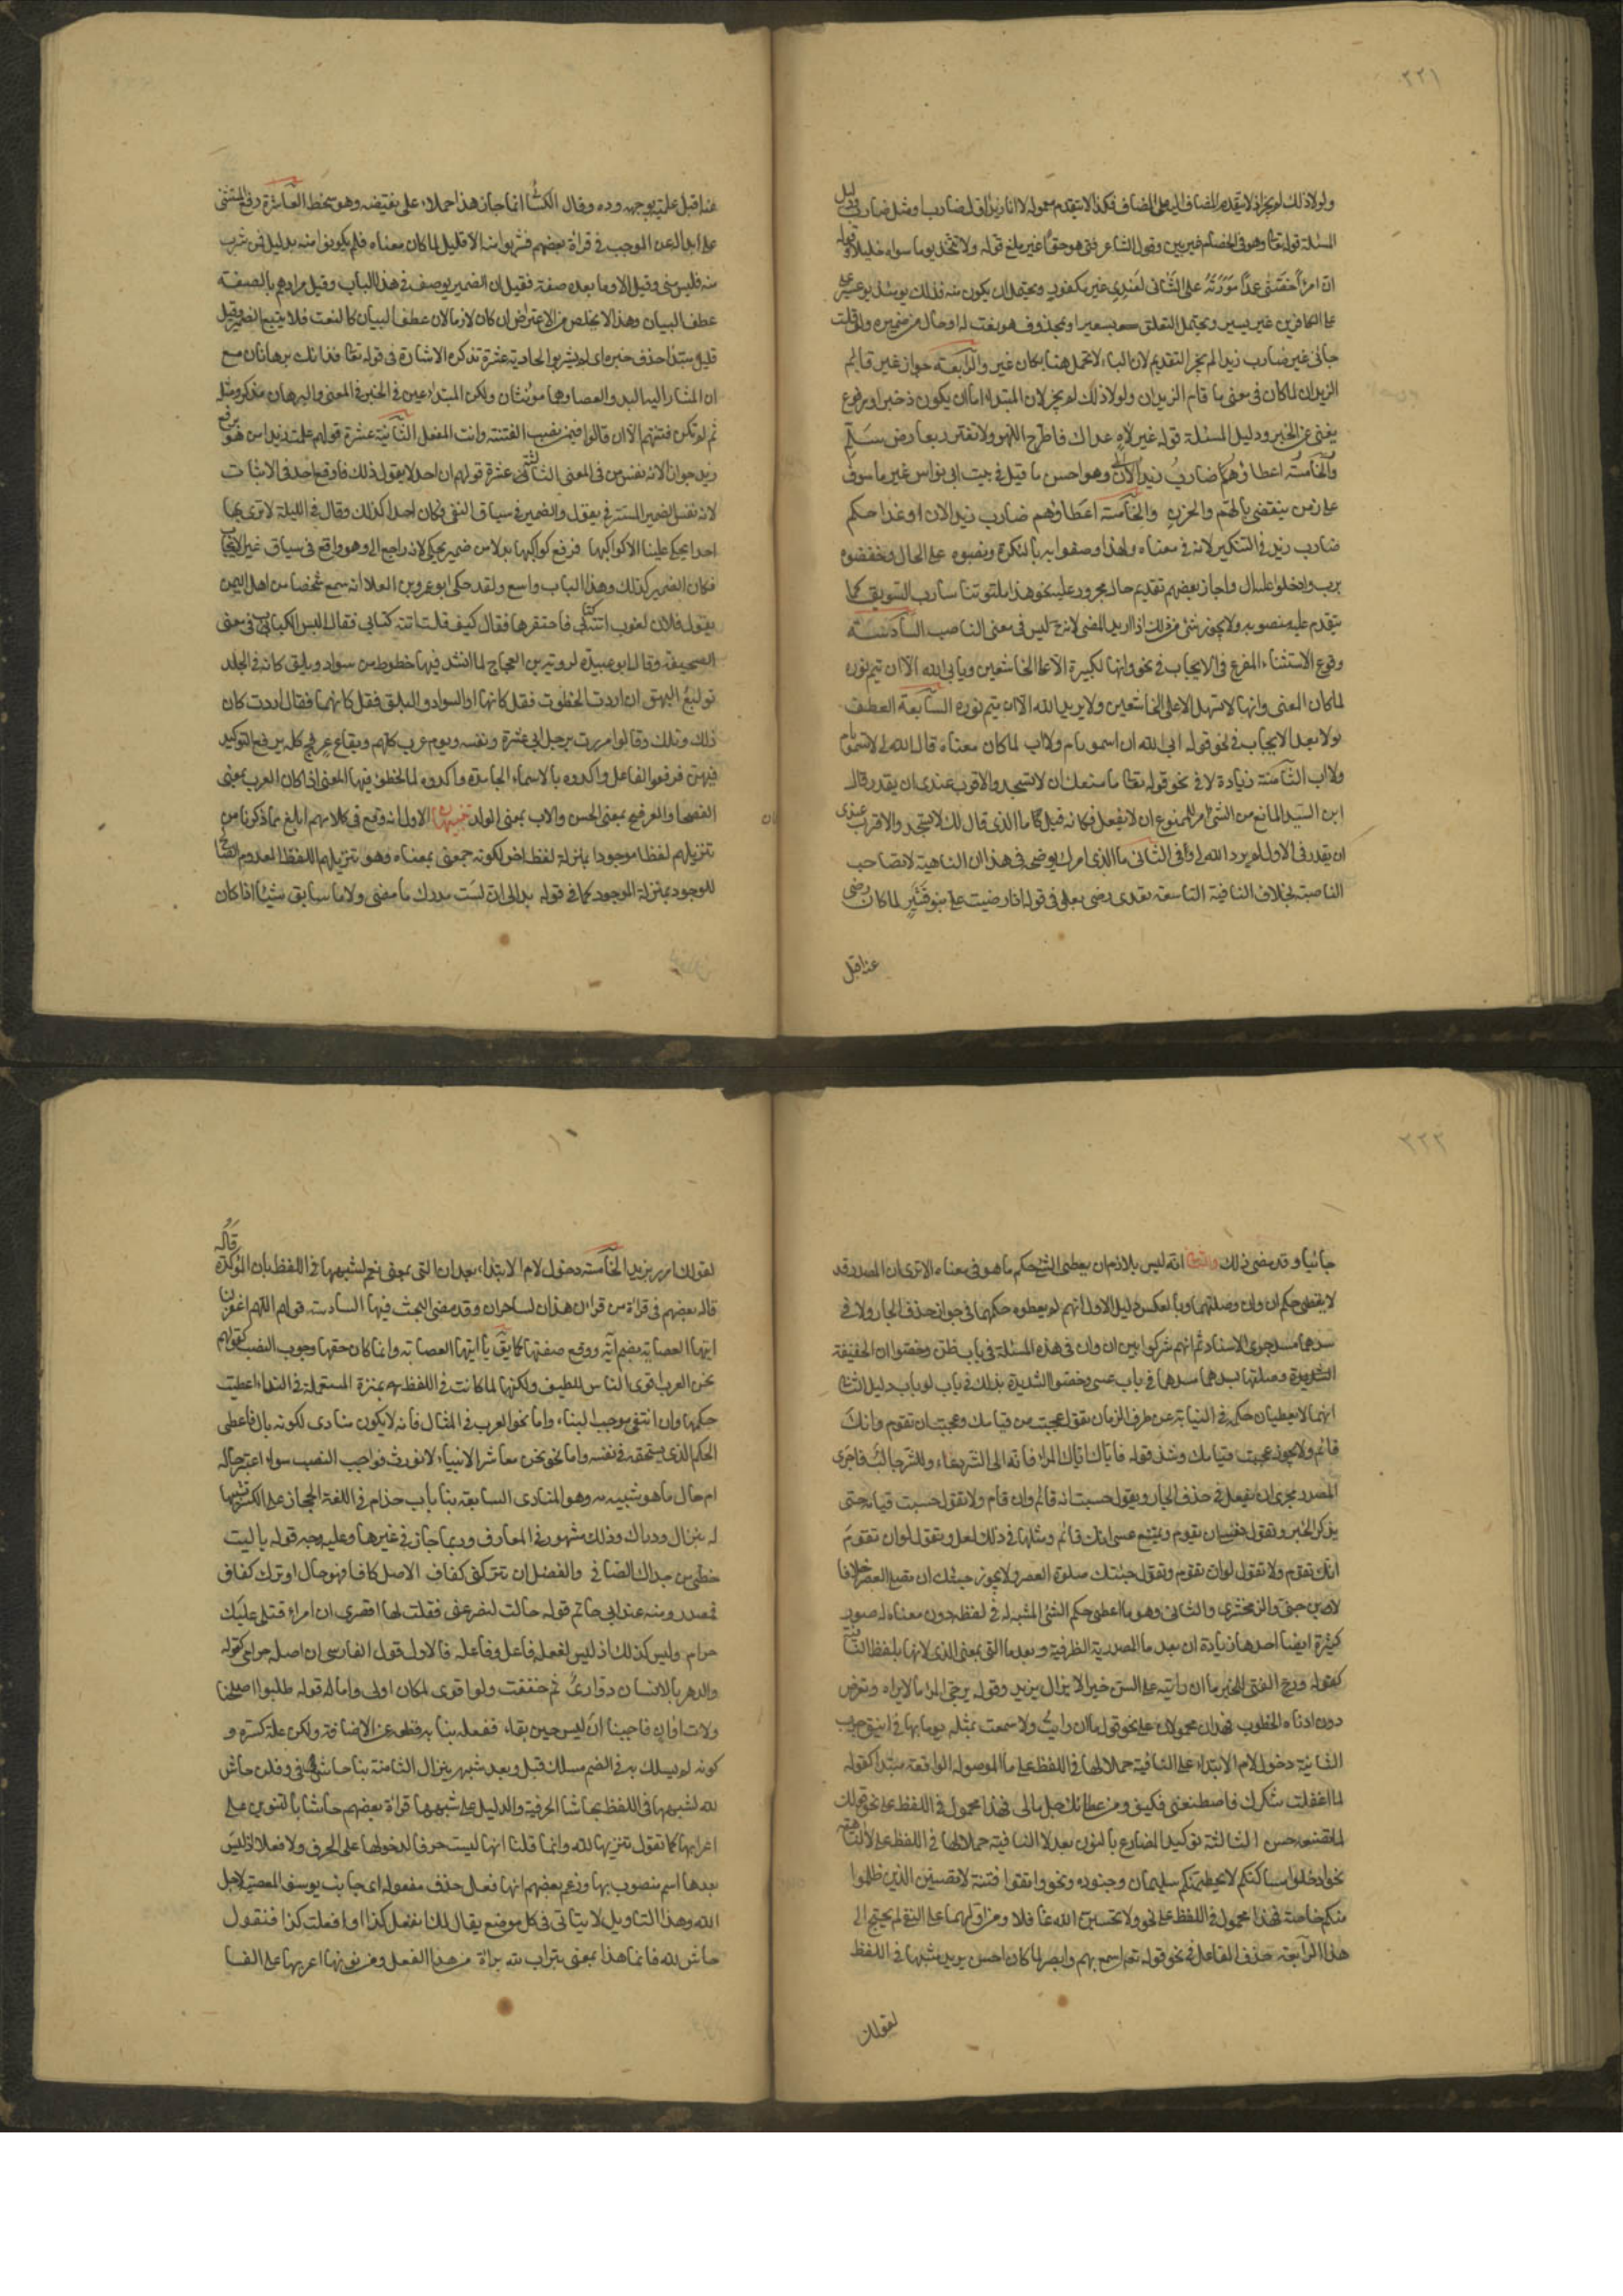 ٢٢١
ولولا ذلك لم يجز اذ لا يتقدم المضاف اليه على المضاف فكذا لا يتقدم معموله لا انا زيدا اول ضارب او مثل ضارب ودليل
المسئلة قوله تعالى وهو في الخصام غير مبين وقول الشاعر فتى هو حقا غير ملغ قوله ولا تتخذ يوما سواه خليلا وقوله
ان امرأ خصني عمدا مودته على التنائي لعندي غير مكفور ويحتمل ان يكون منه فذلك يومئذ يوم عسير
على الكافرين غير يسير ويحتمل التعلق بعسير او بمحذوف هو نعت له او حال من ضميره ولو قلت
جاءني غير ضارب زيدا لم يجز التقديم لان الباء لا تحمل هنا مكان غير والرابعة جواز غير قائم
الزيدان لما كان في معنى ما قائم الزيدان ولولا ذلك لم يجز لان المبتدا اما ان يكون ذخبر او مرفوع
يغني عن الخبر ودليل المسئلة قوله غير لاه عداك فاطرح اللهو ولا تغترر بعارض سلم
وهو احسن ما قيل في بيت ابي نواس غير ماسوف
على زمن ينقضي بالهم والحزن والخامسة اعطاؤهم ضارب زيد الان او غدا حكم
ضارب زيد في التنكير لانه في معناه ولهذا وصفوا به النكرة ونصبوه على الحال وخفضوه
برب وادخلوا عليه ال واجاز بعضهم تقديم حال مجرور عليه نحو هذا ملتوتا شارب السويق كما
يتقدم عليه منصوبه ولا يجوز شئ من ذلك اذا اريد المضي لانه ح ليس في معنى الناصب السادسة
وقوع الاستثناء المفرغ في الايجاب في نحو وانها لكبيرة الا على الخاشعين ويابى الله الا ان يتم نوره
لما كان المعنى وانها لا تسهل الا على الخاشعين ولا يريد الله الا ان يتم نوره السابعة العطف
بولا بعد الايجاب في نحو قوله ابى الله ان اسمو بام ولا اب لما كان معناه قال الله لي لا تسمو بام
ولا اب الثامنة زيادة لا في نحو قوله تعالى ما منعك ان لا تسجد والاقرب عندي ان يقدر قال
ابن السيد المانع من الشئ امر للممنوع ان لا يفعل فكانه قيل ما الذي قال لك لا تسجد والاقرب عندي
ان يقدر في الاول لم يرد الله لي وفي الثاني ما الذي امرك يوضحه في هذا ان الناهية لا تصاحب
الناصبة بخلاف النافية التاسعة تعدي رضي بعلى في قوله اذا رضيت علي بنو قشير لما كان رضي
عنه اقبل
عنه اقبل عليه بوجه وده وقال الكسائي انما جاز هذا حملا على نقيضه وهو سخط العاشرة رفع المستثنى
على ابداله من الموجب في قراءة بعضهم فشربوا منه الا قليل لما كان معناه فلم يكونوا منه بدليل فمن شرب
منه فليس مني وقيل الا وما بعده صفة فقيل ان الضمير يوصف في هذا الباب وقيل مرادهم بالصفة
عطف البيان وهذا لا يخلص من الاعتراض ان كان لازما لان عطف البيان كالنعت فلا يتبع الضمير وقيل
قليل مبتدا حذف خبره اي لم يشربوا الحادية عشرة تذكير الاشارة في قوله تعالى فذانك برهانان مع
ان المشار اليه اليد والعصا وهما مونثان ولكن المبتدا عين في الخبر في المعنى والبرهان مذكر ومثله
ثم لم تكن فتنتهم الا ان قالوا فيمن نصب الفتنة وانث الفعل الثانية عشرة قولهم علمت زيد من هو برفع
زيد جوازا لانه نفس من في المعنى الثالثة عشرة قولهم ان احدا لا يقول ذلك فاوقع احد في الاثبات
لانه نفس الضمير المستتر في يقول والضمير في سياق النفي وكان احدا كذلك وقال في الليلة لا نرى بها
احدا يحكي علينا الا كواكبها فرفع كواكبها بدلا من ضمير يحكي لانه راجع الى وهو واقع في سياق غير الايجاب
فكان الضمير كذلك وهذا الباب واسع ولقد حكى ابو عمرو بن العلا انه سمع شخصا من اهل اليمن
يقول فلان لغوب اتته كتابي فاحتقرها فقال كيف قلت اتته كتابي فقال اليس الكتاب في معنى
الصحيفة وقال ابو عبيدة لروبة بن العجاج لما انشد فيها خطوط من سواد وبلق كانه في الجلد
توليع البهق ان اردت الخطوط فقل كانها او السواد والبلق فقل كانهما فقال اردت كان
ذلك وتلك وقالوا مررت برجل ابي عشرة ونفسه وبقوم عرب كلهم وبقاع عرفج كله برفع التوكيد
فيهن فرفعوا الفاعل واكدوه بالاسماء الجامدة واكدوه لما لحظوا فيها المعنى اذا كان العرب بمعنى
الفصحا والعرفج بمعنى الخشن والاب بمعنى الوالد تنبيهات الاول انه وقع في كلامهم ابلغ مما ذكرنا من
تنزيلهم لفظا موجودا منزلة لفظ اخر لكونه بمعناه وهو تنزيلهم اللفظ المعدوم الصالح
للوجود بمنزلة الموجود كما في قوله بدا لي اني لست مدرك ما مضى ولا سابق شيئا اذا كان
٢٢٢
جائيا وقد مضى ذلك والثاني انه ليس بلازم ان يعطى الشئ حكم ما هو في معناه الا ترى ان المصدر قد
لا يعطى حكم ان وان وصلتهما وبالعكس دليل الاول انهم لم يعطوه حكمهما في جواز حذف الجار ولا في
سدهما مسد جزئي الاسناد ثم انهم شركوا بين ان وان في هذه المسئلة في باب ظن وخصوا ان الخفيفة
وصلتها بسدها مسدها في باب عسى وخصوا الشديدة بذلك في باب لو باب دليل الثاني
انهما لا يعطيان حكمه في النيابة عن ظرف الزمان تقول عجبت من قيامك وعجبت ان تقوم وانك
قائم ولا يجوز عجبت قيامك وشذ قوله فاياك اياك المراء فانه الى الشر دعاء وللشر جالب فاجرى
المصدر مجرى ان يفعل في حذف الجار وتقول حسبت انه قائم وان قام ولا تقول حسبت قيامه حتى
يذكر الخبر وتقول عسى ان يقوم ويمتنع عسى انك قائم ومثلها في ذلك لعل وتقول لو ان تقوم
انك تقوم ولا تقول لو ان تقوم وتقول جئتك صلوة العصر ولا يجوز جئتك ان تصلي العصر خلافا
لابن جني والزمخشري والثاني وهو ما اعطي حكم الشئ المشبه له في لفظه دون معناه له صور
كثيرة ايضا احدها زيادة ان بعد ما المصدرية الظرفية وبعد ما التي بمعنى الذي لانها بلفظ النافية
كقوله ورج الفتى للخير ما ان رايته على السن خيرا لا يزال يزيد وقوله يرجي المرء ما لا يراه وتعرض
دون ادناه الخطوب فهذان محمولان على نحو قوله ما ان رايت ولا سمعت بمثله يوما بها في اينق جرب
الثانية دخول لام الابتداء على ما النافية حملا لها في اللفظ على ما الموصولة الواقعة مبتدا كقوله
لما اغفلت شكرك فاصطنعني فكيف ومن عطائك جل مالي فهذا محمول في اللفظ على نحو قولك
لما تصنعه حسن الثالثة توكيد المضارع بالنون بعد لا النافية حملا لها في اللفظ على لا الناهية
نحو ادخلوا مساكنكم لا يحطمنكم سليمان وجنوده ونحو واتقوا فتنة لا تصيبن الذين ظلموا
منكم خاصة فهذا محمول في اللفظ على نحو ولا تحسبن الله غافلا ومن اولهما على النهي لم يحتج الى
هذا الرابعة حذف الفاعل في نحو قوله تعالى اسمع بهم وابصر لما كان احسن بزيد مشبها في اللفظ
لقولك
لقولك امرر بزيد الخامسة دخول لام الابتداء بعد ان التي بمعنى نعم لشبهها في اللفظ بان المؤكدة قاله
قاله بعضهم في قراءة من قرا ان هذان لساحران وقد مضى البحث فيها السادسة قولهم اللهم اغفر لنا
ايتها العصابة بضم اية ووقع صفتها كما يق يا ايتها العصابة وانما كان حقها وجوب النصب كقولهم
نحن العرب اقرى الناس للضيف ولكنها لما كانت في اللفظ بمنزلة المستعملة في النداء اعطيت
حكمها وان انتفى موجب البناء واما نحو العرب في المثال فانه لا يكون منادى لكونه بال فاعطي
الحكم الذي يستحقه في نفسه واما نحو نحن معاشر الانبياء لا نورث فواجب النصب سواء اعتبر حاله
ام حال ما هو شبيه به وهو المنادى السابعة بنا باب حذام في اللغة الحجاز على الكسر تشبيها
له بنزال ودراك وذلك مشهور في المعارف وربما جاز في غيرها وعليه وجه قوله يا ليت
حظي من جداك الضافي والفضل ان تتركني كفاف الاصل كفافا فهو حال او ترك كفاف
فمصدر ومنه عند ابي حاتم قوله جالت لتصرعني فقلت لها اقصري اني امرء قتلي عليك
حرام وليس كذلك اذ ليس لفعله فاعل وفاعله فالاولى قول الفارسي ان اصله حرامي كقوله
والدهر بالانسان دواري ثم خففت ولو اقوى لكان اولى واما له قوله طلبوا صلحنا
ولات اوان فاجبنا ان ليس حين بقاء ففعله بنا به قطعه عن الاضافة ولكن علة كسره و
كونه لم يسلك به في الضم مسلك قبل وبعد شبهه بنزال الثامنة بنا حاشى في وقلن حاش
لله لشبهها في اللفظ بحاشا الحرفية والدليل على شبهها قراءة بعضهم حاشا بالتنوين على
اعرابها كما تقول تنزيها لله وانما قلنا انها ليست حرفا لدخولها على الحرف ولا فعلا اذ ليس
بعدها اسم منصوب بها وزعم بعضهم انها فعل حذف مفعوله اي جانب يوسف المعصية لاجل
الله وهذا التاويل لا يتاتى في كل موضع يقال لك اتفعل كذا او افعلت كذا فتقول
حاش لله فانما هذا بمعنى تبرات لله براءة من هذا الفعل ومن نونها اعربها على الغا